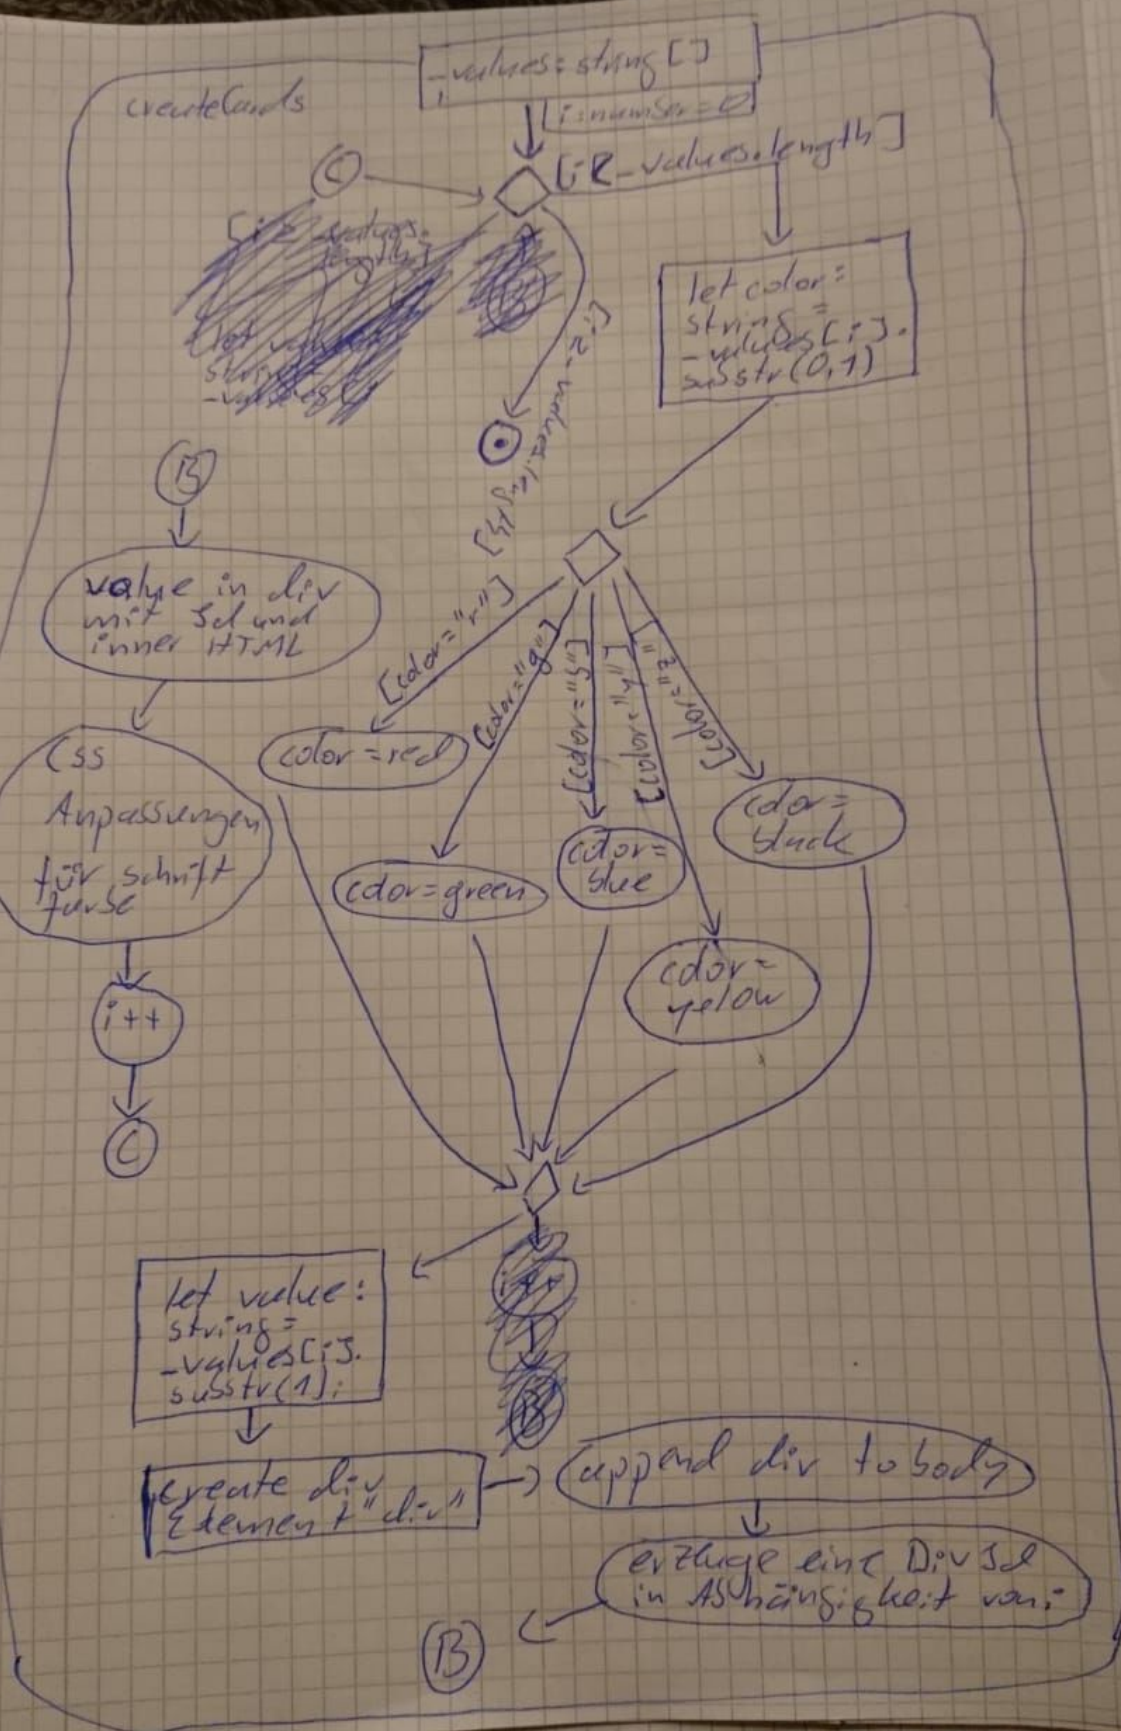 createCards
_values = string[]
i: number = 0
C
[i < _values.length]
let color =
string =
_values[i].
substr(0,1)
[i ≥ _values.length]
B
value in div
mit Id und
inner HTML
CSS
Anpassungen
für schrift
farbe
i++
C
[color="r"]
[color="g"]
[color="b"]
[color="y"]
[color="z"]
color=red
color=green
color=
blue
color=
yelow
color=
black
let value:
string =
_values[i].
substr(1);
create div
Element "div"
append div to body
erzeuge eine Div Id
in Abhängigkeit von i
B